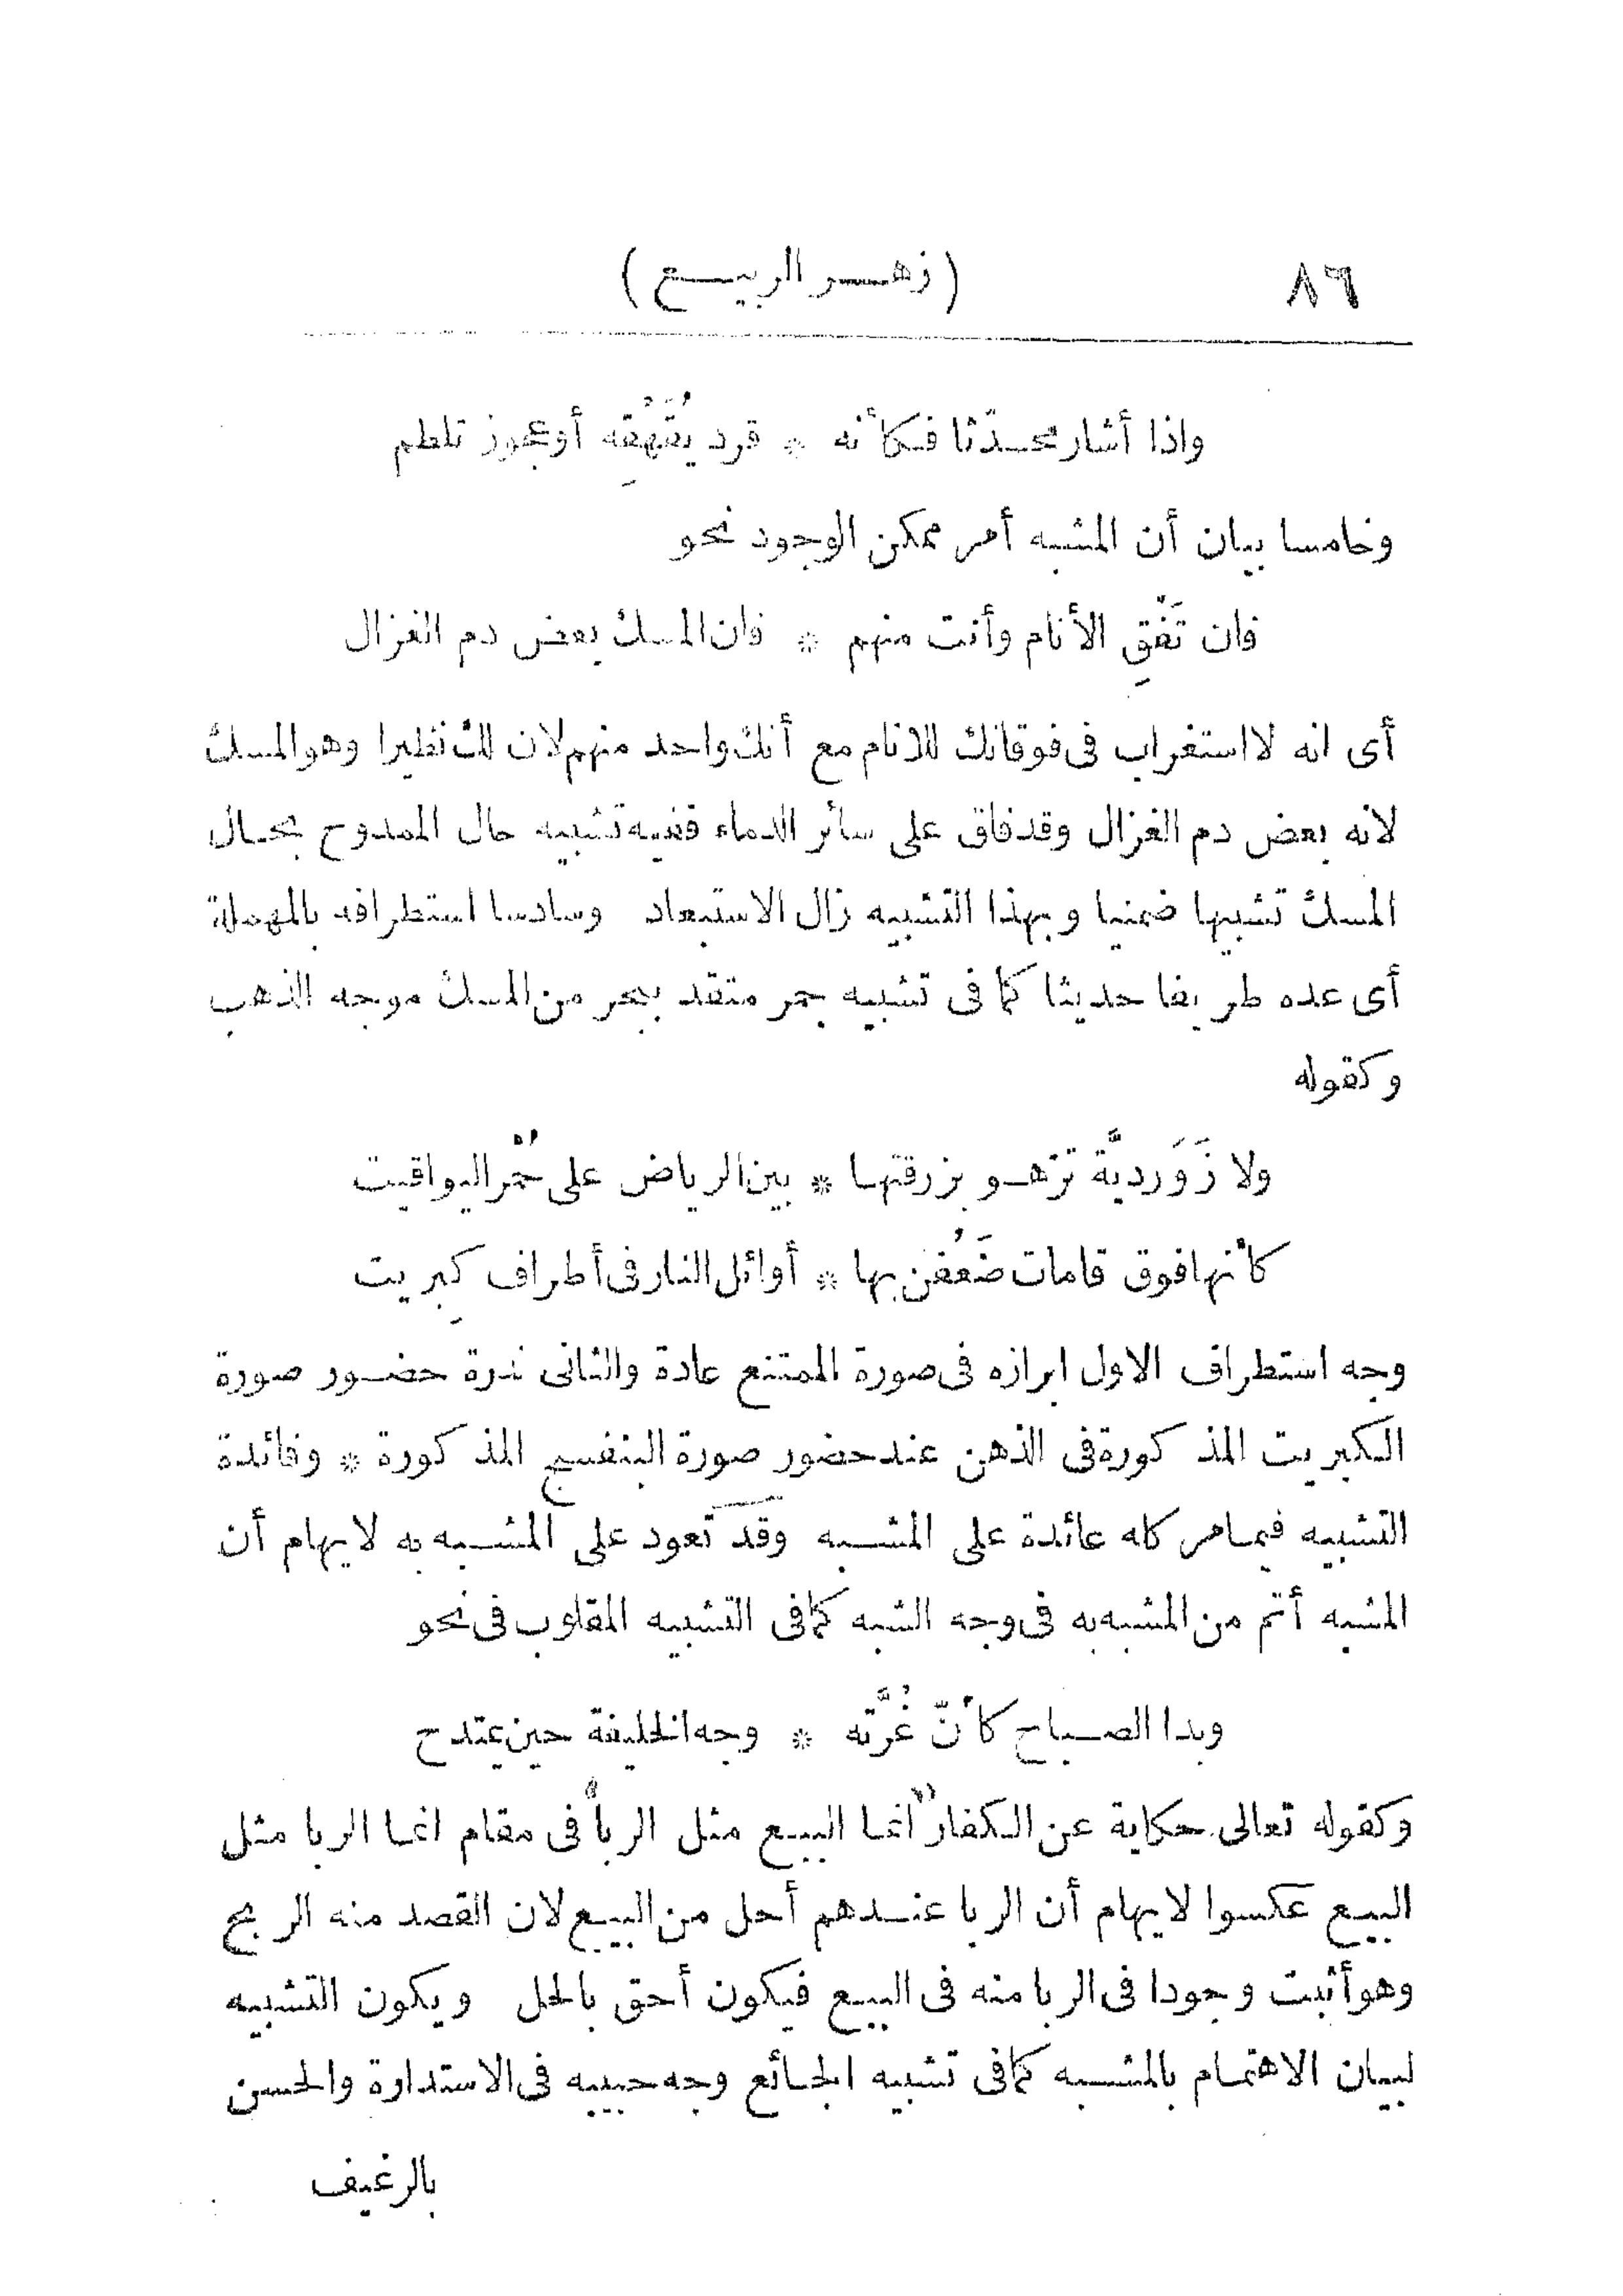 ٨٦ (زهر الربيع)
واذا أشار محدّثا فكأنه * قرد يُقَهْقِه أو عجوز تلطم
وخامسا بيان أن المشبه أمر ممكن الوجود نحو
فان تَفُقِ الأنام وأنت منهم * فان المسك بعض دم الغزال
أى انه لا استغراب فى فوقانك للانام مع أنك واحد منهم لان لك نظيرا وهو المسك
لانه بعض دم الغزال وقد فاق على سائر الدماء ففيه تشبيه حال الممدوح بحال
المسك تشبيها ضمنيا وبهذا التشبيه زال الاستبعاد وسادسا استطرافه بالمهملة
أى عده طريفا حديثا كما فى تشبيه جمر متقد ببحر من المسك موجه الذهب
وكقوله
ولا زَوَرديَّة تزهو بزرقتها * بين الرياض على حُمْر اليواقيت
كأنها فوق قامات ضَعُفن بها * أوائل النار فى أطراف كِبريت
وجه استطراف الاول ابرازه فى صورة الممتنع عادة والثانى ندرة حضور صورة
الكبريت المذكورة فى الذهن عند حضور صورة البنفسج المذكورة * وفائدة
التشبيه فيما مر كله عائدة على المشبه وقد تعود على المشبه به لايهام أن
المشبه أتم من المشبه به فى وجه الشبه كما فى التشبيه المقلوب فى نحو
وبدا الصباح كأنّ غُرَّته * وجه الخليفة حين يمتدح
وكقوله تعالى حكاية عن الكفار "انما البيع مثل الربا" فى مقام انما الربا مثل
البيع عكسوا لايهام أن الربا عندهم أحل من البيع لان القصد منه الربح
وهو أثبت وجودا فى الربا منه فى البيع فيكون أحق بالحل ويكون التشبيه
لبيان الاهتمام بالمشبه كما فى تشبيه الجائع وجه حبيبه فى الاستدارة والحسن
بالرغيف